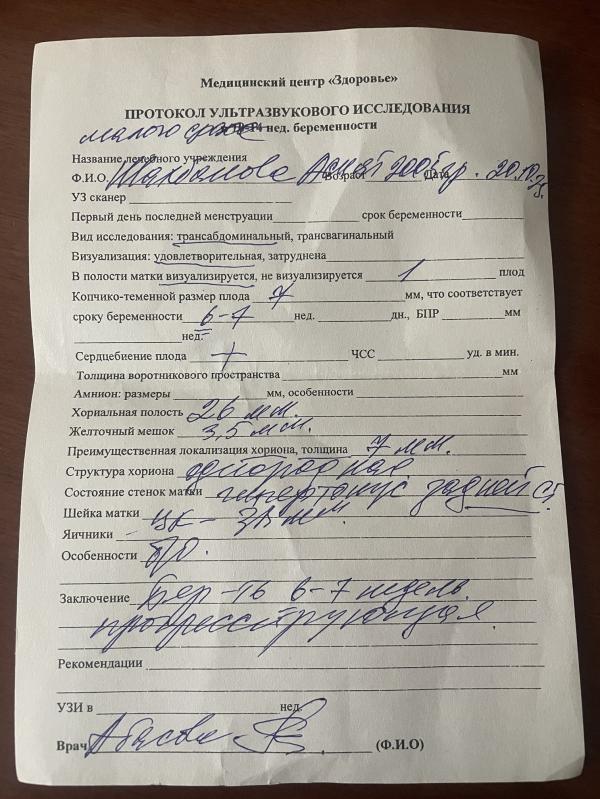 Медицинский центр «Здоровье»
ПРОТОКОЛ УЛЬТРАЗВУКОВОГО ИССЛЕДОВАНИЯ
малого срока нед. беременности
Название лечебного учреждения
Ф.И.О. Возраст Дата
УЗ сканер
Первый день последней менструации срок беременности
Вид исследования: трансабдоминальный, трансвагинальный
Визуализация: удовлетворительная, затруднена
В полости матки визуализируется, не визуализируется 1 плод
Копчико-теменной размер плода 7 мм, что соответствует
сроку беременности 6-7 нед. дн., БПР мм
нед.
Сердцебиение плода + ЧСС уд. в мин.
Толщина воротникового пространства мм
Амнион: размеры мм, особенности
Хориальная полость 26 мм.
Желточный мешок 3,5 мм.
Преимущественная локализация хориона, толщина 7 мм.
Структура хориона однородная
Состояние стенок матки гипертонус задней ст.
Шейка матки цк - мм.
Яичники
Особенности б/о.
Заключение Бер-ть 6-7 недель.
прогрессирующая.
Рекомендации
УЗИ в нед.
Врач (Ф.И.О)